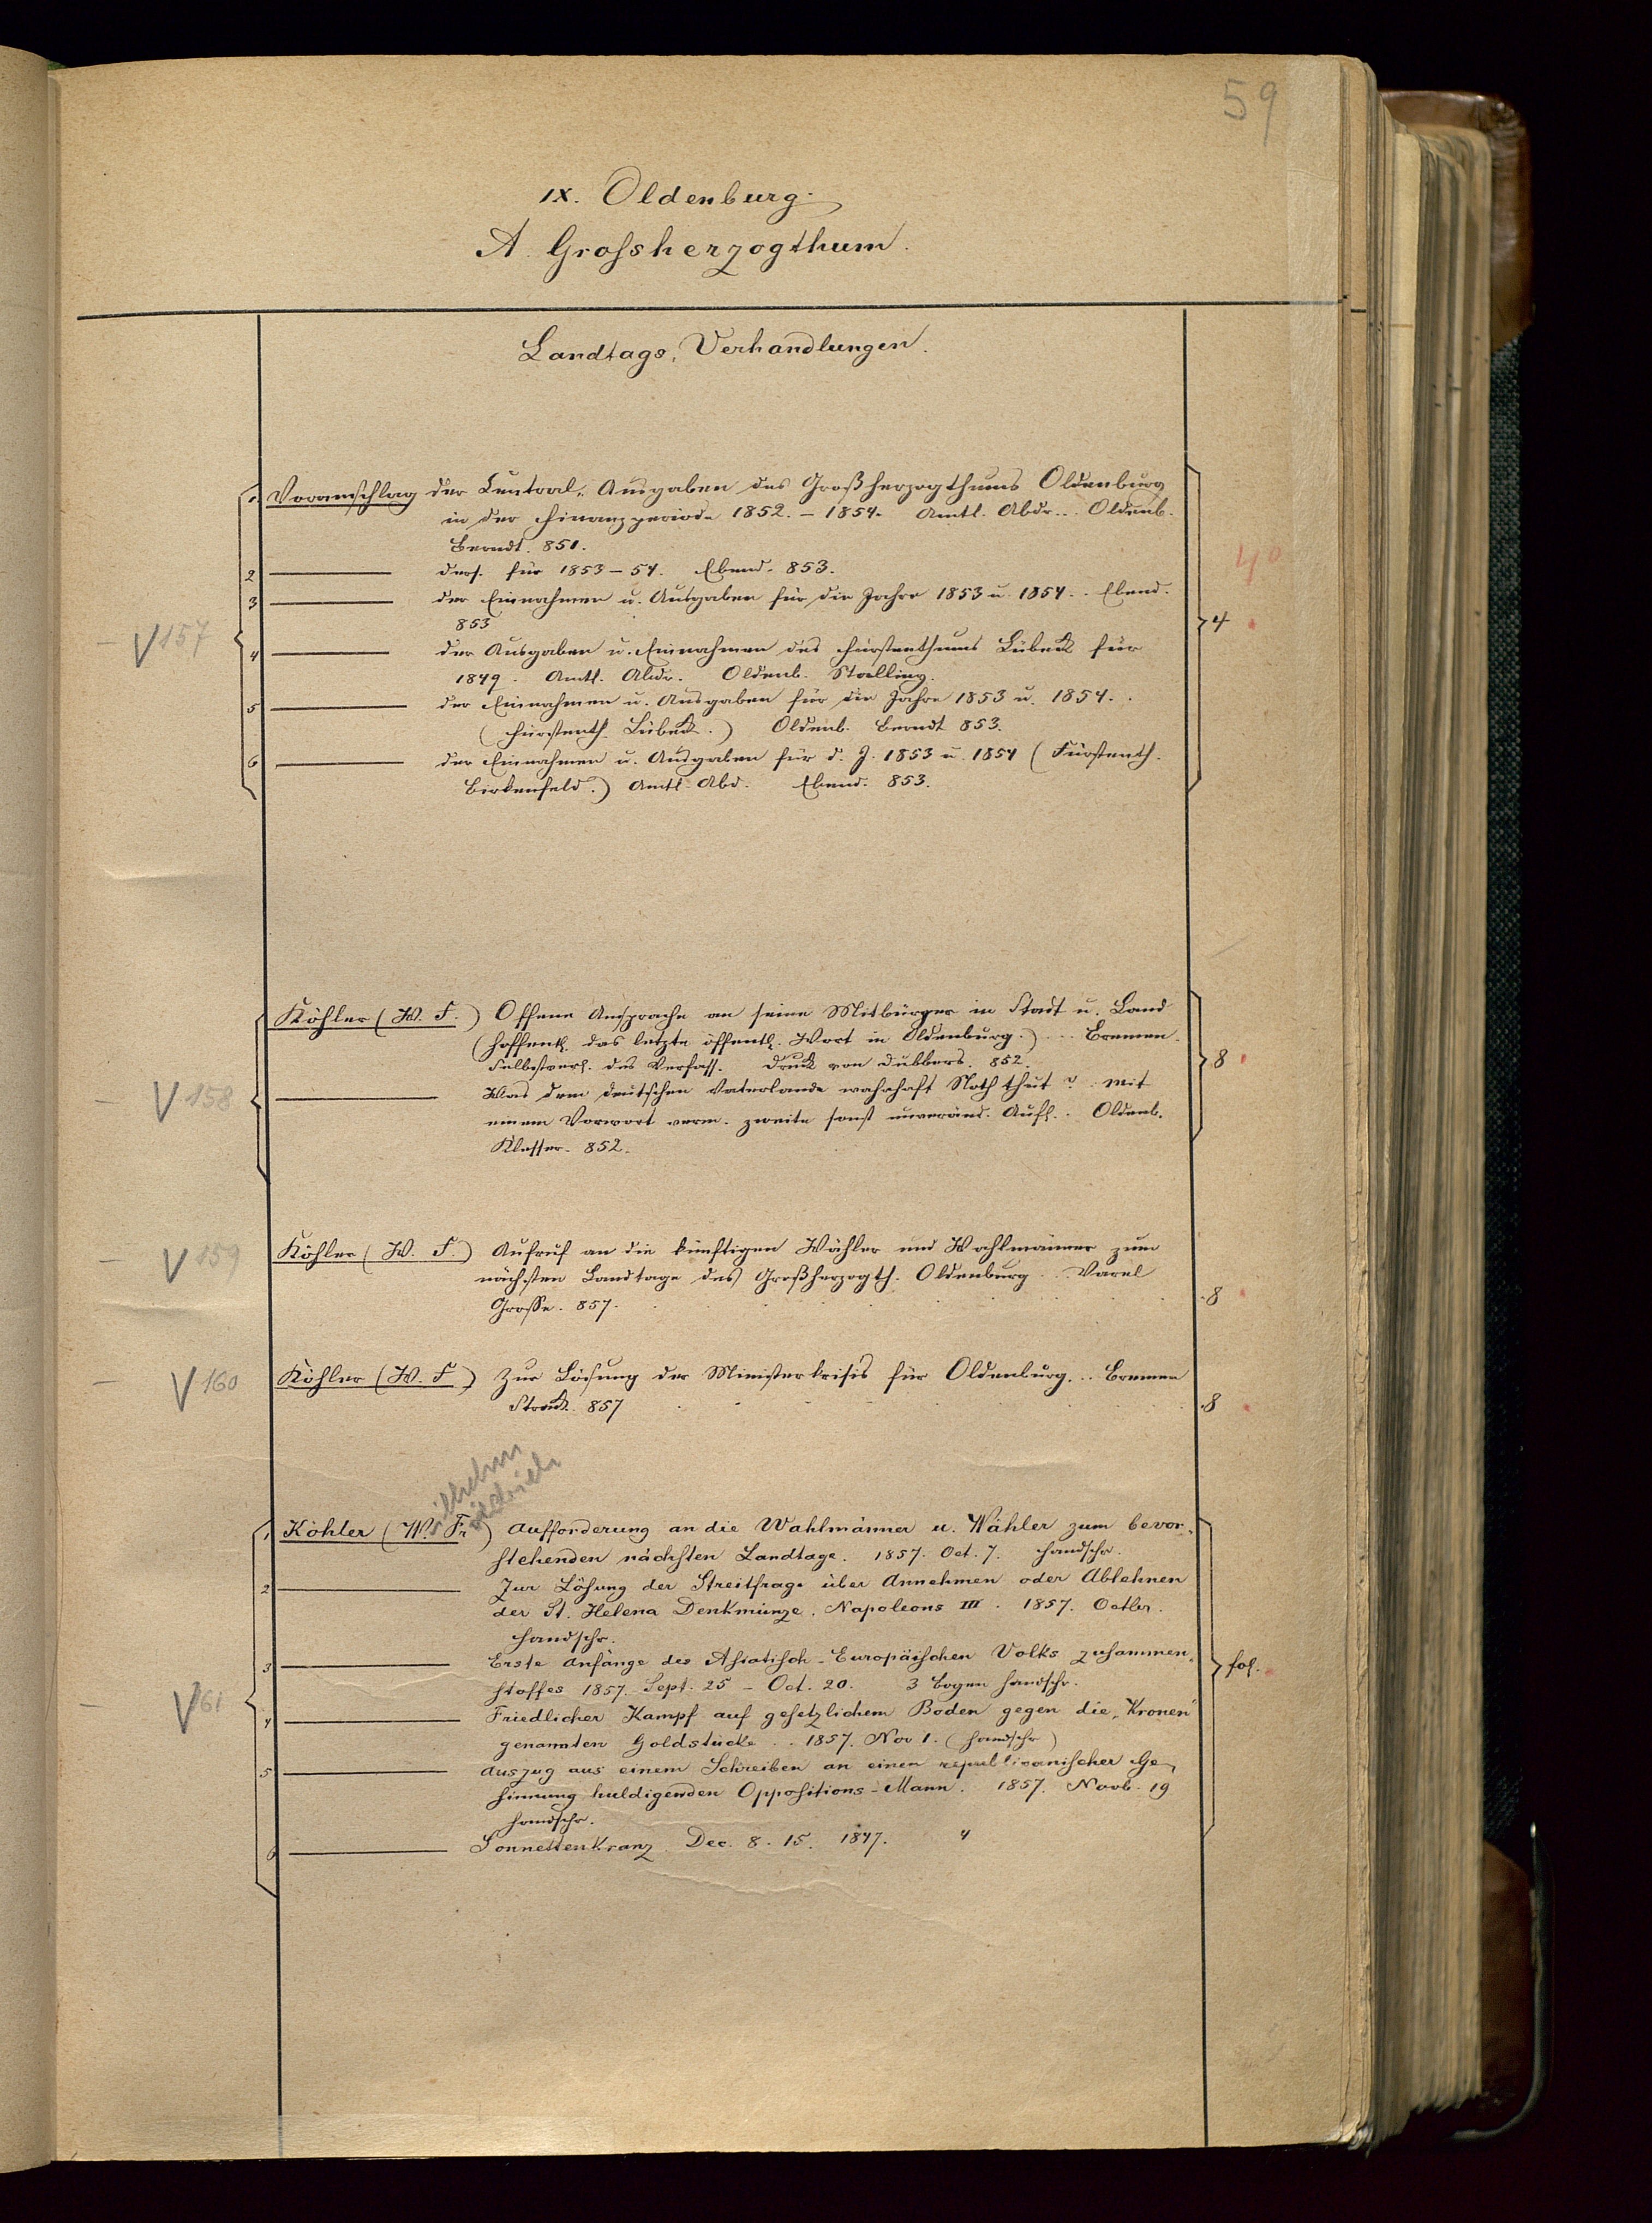 59
IX. Oldenburg.
A Grossherzogthum.
Landtags-Verhandlungen.
1 Voranschlag der Central-Ausgaben des Großherzogthums Oldenburg
in der Finanzperiode 1852.–1854. Amtl. Abdr... Oldenb.
Berndt. 851.
4°
2 ders. für 1853–54. Ebend. 853.
3 der Einnahmen u. Ausgaben für die Jahre 1853 u. 1854.. Ebend.
853
– V 157
4
4 der Ausgaben u. Einnahmen des Fürstenthums Lübeck für
1849. Amtl. Abdr. Oldenb. Stalling.
5 der Einnahmen u. Ausgaben für die Jahre 1853 u. 1854..
(Fürstenth. Lübeck.) Oldenb. Berndt 853.
6 der Einnahmen u. Ausgaben für d. J. 1853 u. 1854 (Fürstenth.
Birkenfeld.) Amtl. Abd. Ebend. 853.
Köhler (W. F.) Offene Ansprache an seine Mitbürger in Stadt u. Land
(hoffentl. das letzte öffentl. Wort in Oldenburg.) ... Bremen.
Selbstverl. des Verfass. Druck von Dubbers. 852.
8
– V 158
Was dem deutschen Vaterlande wahrhaft Noth thut? mit
einem Vorwort verm. zweite sonst unveränd. Aufl.. Oldenb.
Klesser. 852.
– V 159
Köhler (W. F.) Aufruf an die künftigen Wähler und Wahlmänner zum
nächsten Landtage des Großherzogth. Oldenburg... Varel
Grosse. 857. 8
– V 160
Köhler (W. F) Zur Lösung der Ministerkrisis für Oldenburg... Bremen
Strack. 857 8
Wilhelm
Friedrich
1 Köhler (W. Fr) Aufforderung an die Wahlmänner u. Wähler zum bevor-
stehenden nächsten Landtage. 1857. Oct. 7. Handschr.
2 Zur Lösung der Streitfrage über Annehmen oder Ablehnen
der St. Helena Denkmünze, Napoleons III. 1857. Octbr.
Handschr.
3 Erste Anfänge des Asiatisch-Europäischen Volks zusammen-
stosses 1857. Sept. 25 – Oct. 20. 3 Bogen Handschr.
fol.
– V 161
4 Friedlicher Kampf auf gesetzlichem Boden gegen die „Kronen"
genannten Goldstücke.. 1857. Nov 1. (Handschr)
5 Auszug aus einem Schreiben an einen republicanischer Ge-
sinnung huldigenden Oppositions-Mann. 1857. Novb. 19
Handschr.
6 Sonnettenkranz. Dec. 8. 15. 1847. 4